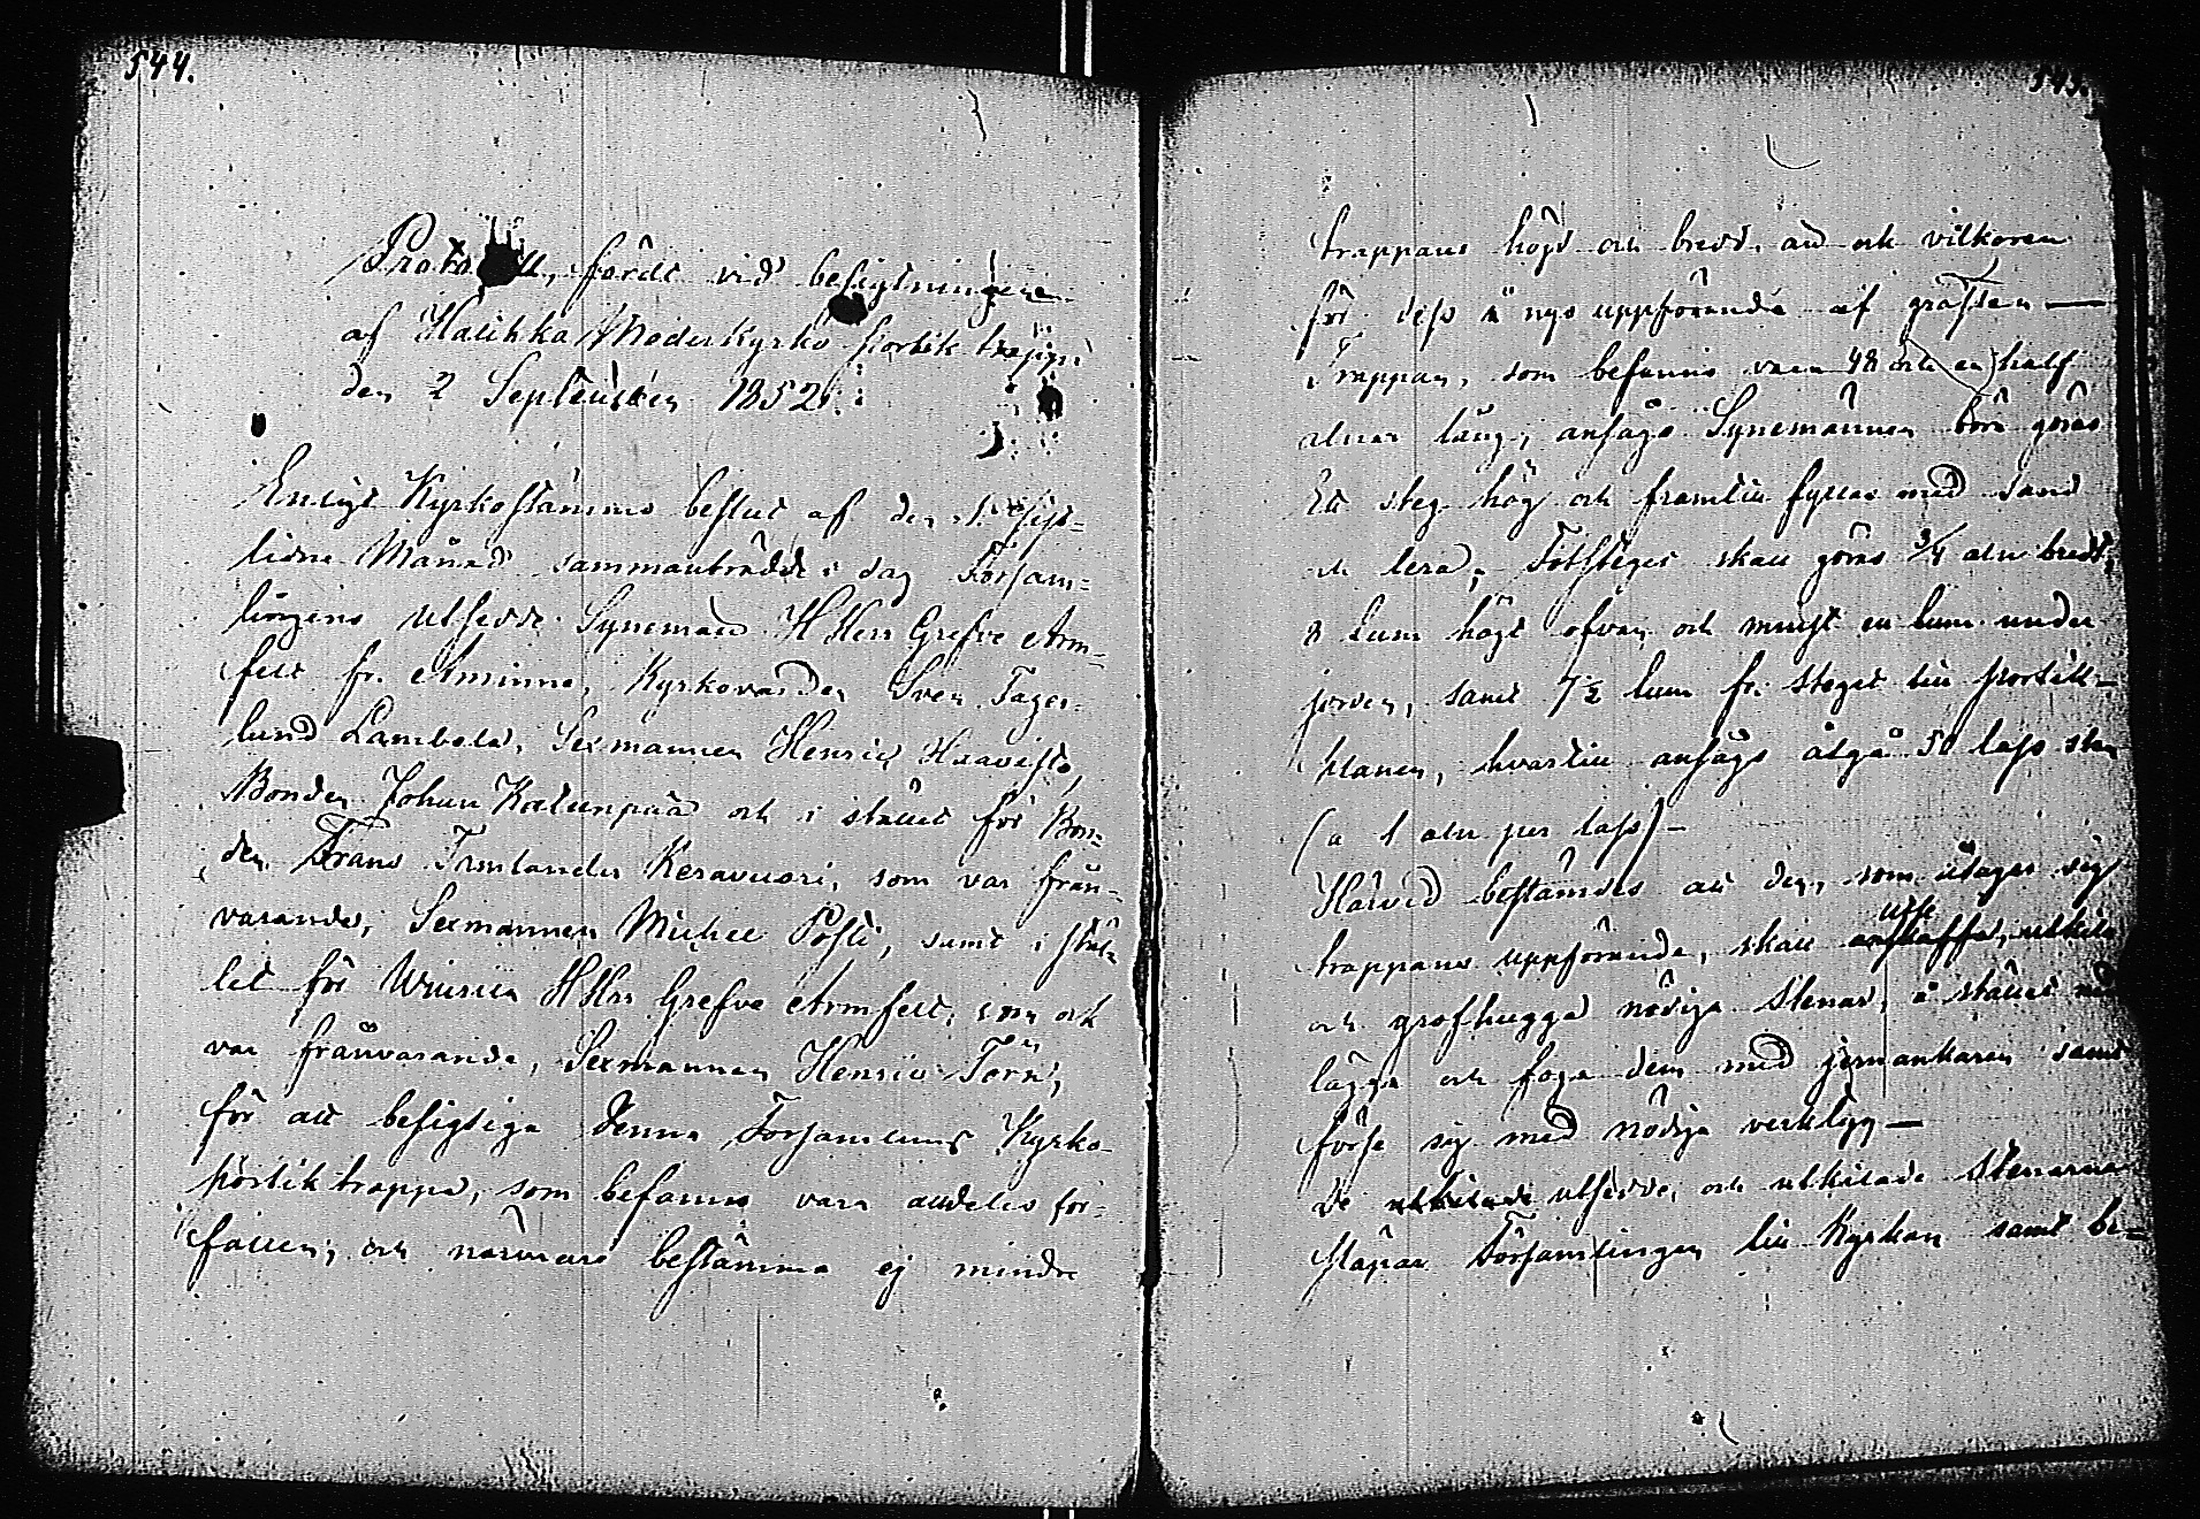 544.
Protokoll, fördt vid besigtningen
af Halikko Moderkyrko portik trappa
den 2 September 1852.
Enligt Kyrkostämmo beslut af den 1 sist-
lidne Månad sammanträdde i dag Försam-
lingens utsedde Synemän HHerr Grefve Arm-
felt fr. Åminne, Kyrkovärden Sven Tager-
lund Lambola, Sexmannen Henric Haavisto,
Bonden Johan Katunpää och i stället för Bon-
den Frans Keravuori, som var från-
varande, Sexmannen Michel Pösti, samt i stäl-
let för HHerr Grefve Armfelt, som ock
var frånvarande, Sexmannen Henric Törn,
för att besigtiga denna Församlings Kyrko
portik trappa, som befanns vara alldeles för-
fallen, och närmare bestämma ej mindre
545.
trappans höjd och bredd, än ock vilkoren
för dess å nyo uppförande af gråsten —
Trappan, som befanns vara 48 och en half
alnar lång, ansågo Synemännen böra göras
Ett steg hög och framtill fyllas med sand
och lera; Fotsteget skall göras 3/4 aln bredt,
8 tum högt ofvan och minst en tum under
jorden, samt 7½ tum fr. steget till portik-
planen, hvartill ansågs åtgå 50 lass sten
(a 1 aln per lass) —
Härvid bestämdes att den, som åtager sig
trappans uppförande, skall utse anskaffa, utkila
och grofhugga nödiga Stenar, i stället
lägga och foga dem med jernankaren samt
förse sig med nödiga verktyg —
De utkilade utsedde, och utkilade Stenarna
släpar Församlingen till Kyrkan samt be-